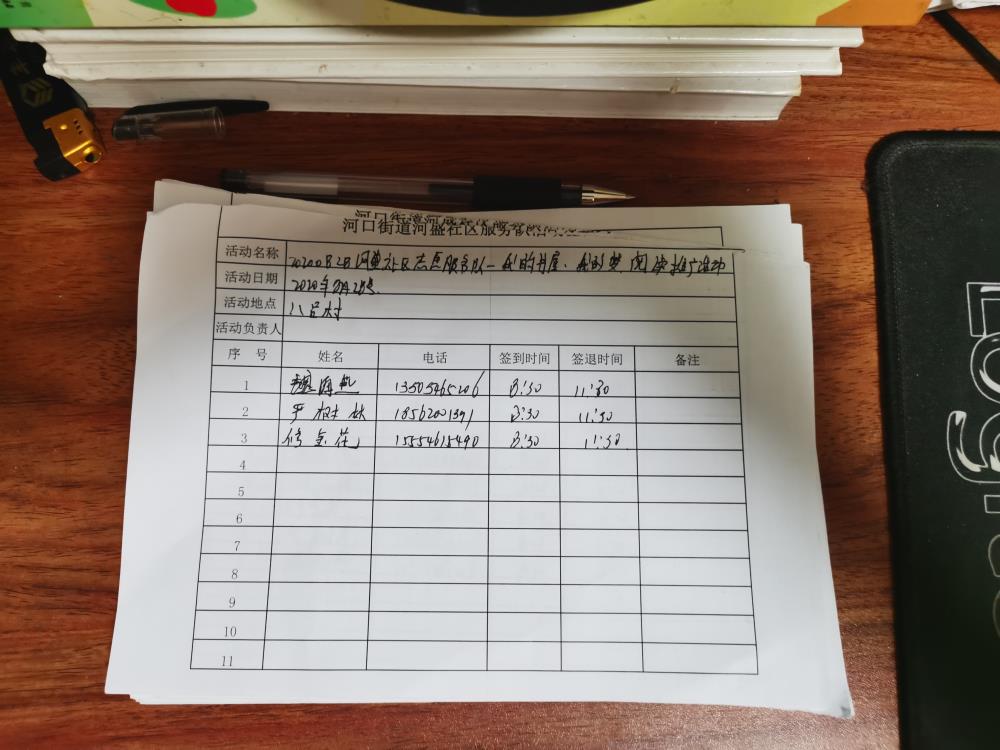 河口街道河盛社区服务
活动名称 河盛社区志愿服务队-我的书屋、我的梦 阅读推广活动
活动日期 2020年8月28号.
活动地点 八吕村
活动负责人
序 号 姓名 电话 签到时间 签退时间 备注
1 13505465206 8:30 11:30
2 严树林 18562001391 8:30 11:30
3 修金花 15554615490 8:30 11:30
4
5
6
7
8
9
10
11